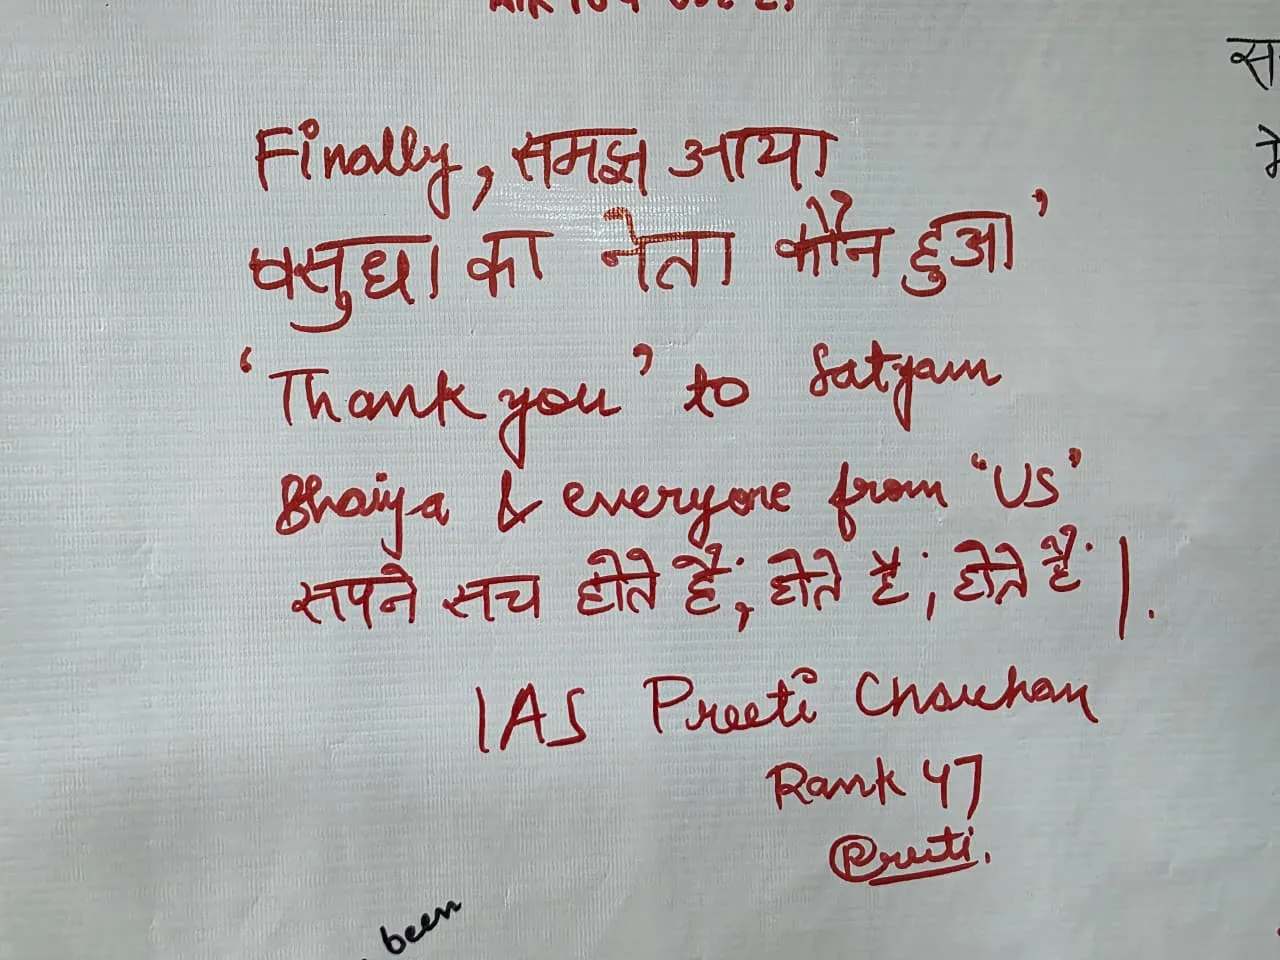 Finally, समझ आया
वसुधा का नेता कौन हुआ’
‘Thank you’ to Satyam
Bhaiya & everyone from “US”
सपने सच होते हैं, होते हैं, होते हैं |.
IAS Preeti Chouhan
Rank 47
Preeti.
been